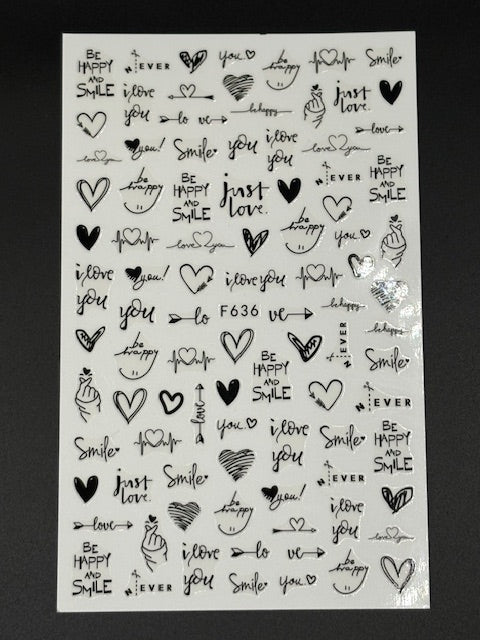 BE HAPPY AND SMILE
NEVER
you
be happy
Smile
i love you
be happy
just love.
lo ve
love you
you!
Smile
you
i love you
love you
love
NEVER
BE HAPPY AND SMILE
be happy
BE HAPPY AND SMILE
just love.
be happy
you
love you
i love you
you!
i love you
be happy
you
lo
F636
ve
be happy
be happy
NEVER
Smile
BE HAPPY AND SMILE
love
NEVER
Smile
you
i love you
Smile
BE HAPPY AND SMILE
just love.
Smile
NEVER
love
be happy
you!
i love you
love you
BE HAPPY AND SMILE
NEVER
i love you
lo ve
Smile
you
be happy